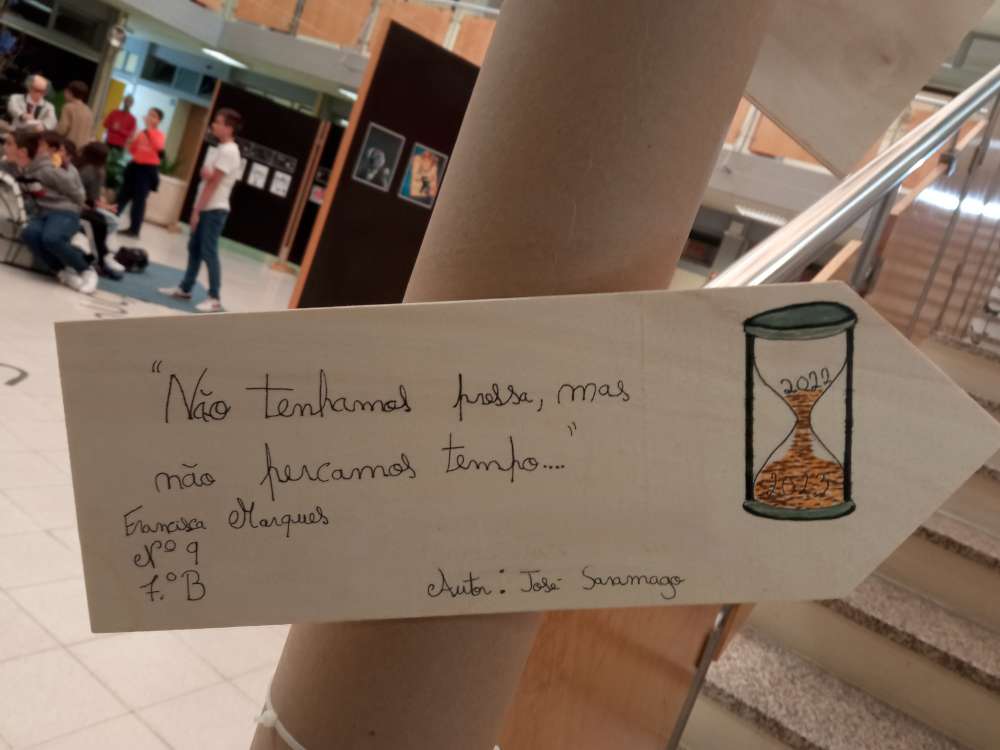 "Não tenhamos pressa, mas
não percamos tempo...."
Francisca Marques
Nº 9
7.º B
Autor: José Saramago
2022
2023